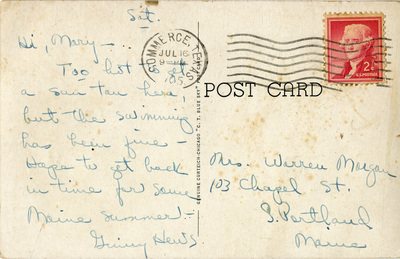 Sat.
Hi, Mary -
Too hot to get
a sun tan here,
but the swimming
has been fine -
Hope to get back
in time for some
Maine summer! -
Ginny
COMMERCE, TEXAS
JUL 16
POST CARD
GENUINE CURTEICH-CHICAGO "C. T. BLUE SKY"
2¢
U.S. POSTAGE
Mrs. Warren Morgan
103 Chapel St.
S. Portland
Maine